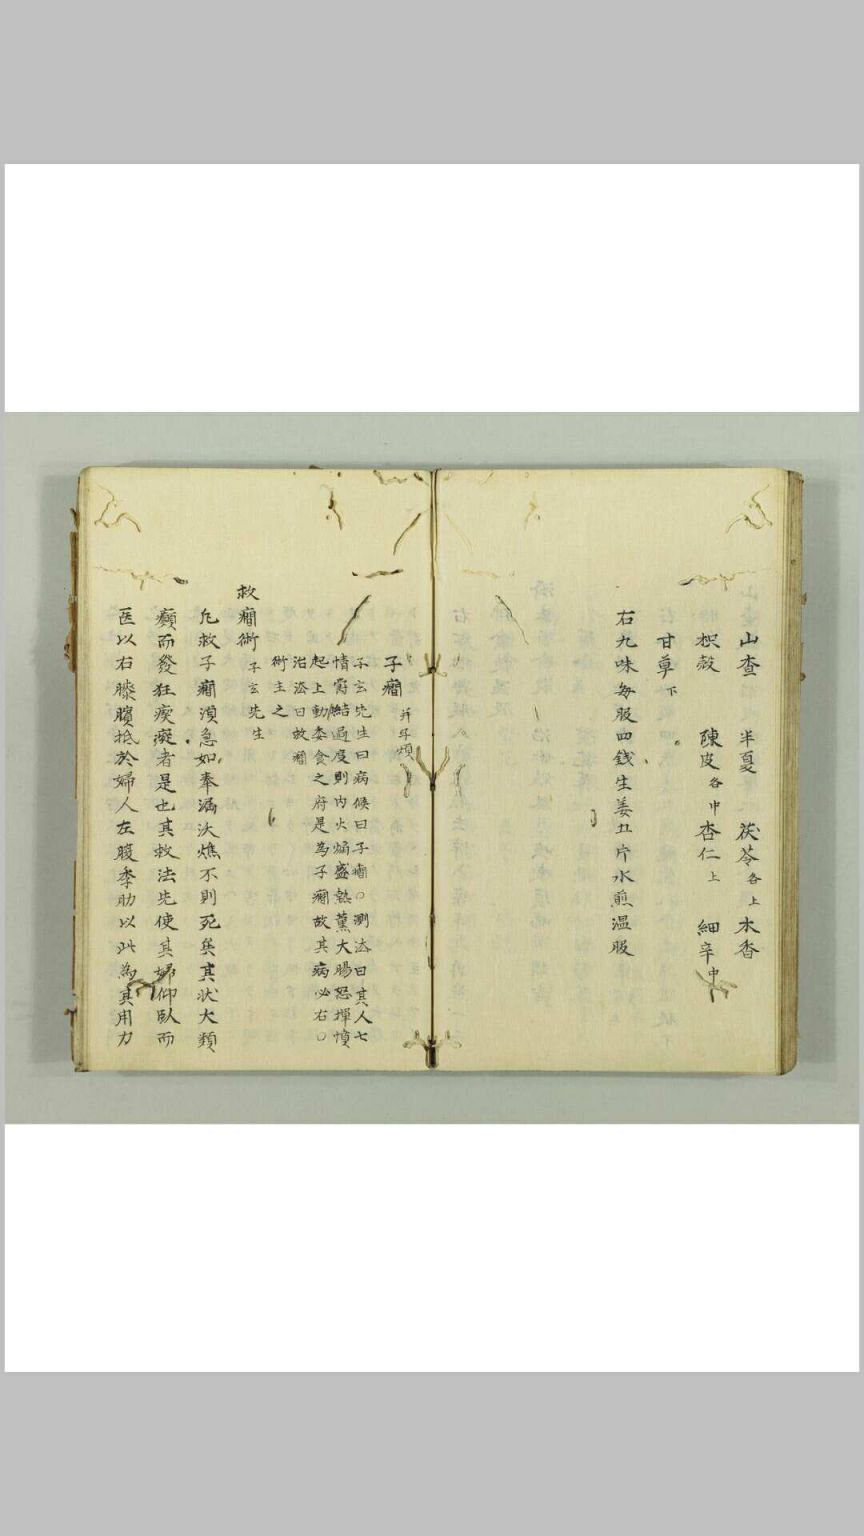 山査 半夏 茯苓各上 木香
枳殻 陳皮各中 杏仁上 細辛中
甘草下
右九味毎服四錢生姜五片水煎温服
子癇
子玄先生曰病候曰子癇○測法曰其人七
情欝結過度則内火熾盛熱薫大腸怒憤
起上動委食之府是為子癇故其病必右○
治法曰救癇
術主之
救癇術 子玄先生
凢救子癇須急如奉漏沃燋不則死矣其状大類
癲而發狂瘈瘲者是也其救法先使其婦仰臥而
医以右膝臏抵於婦人左腹季肋以此為其用力